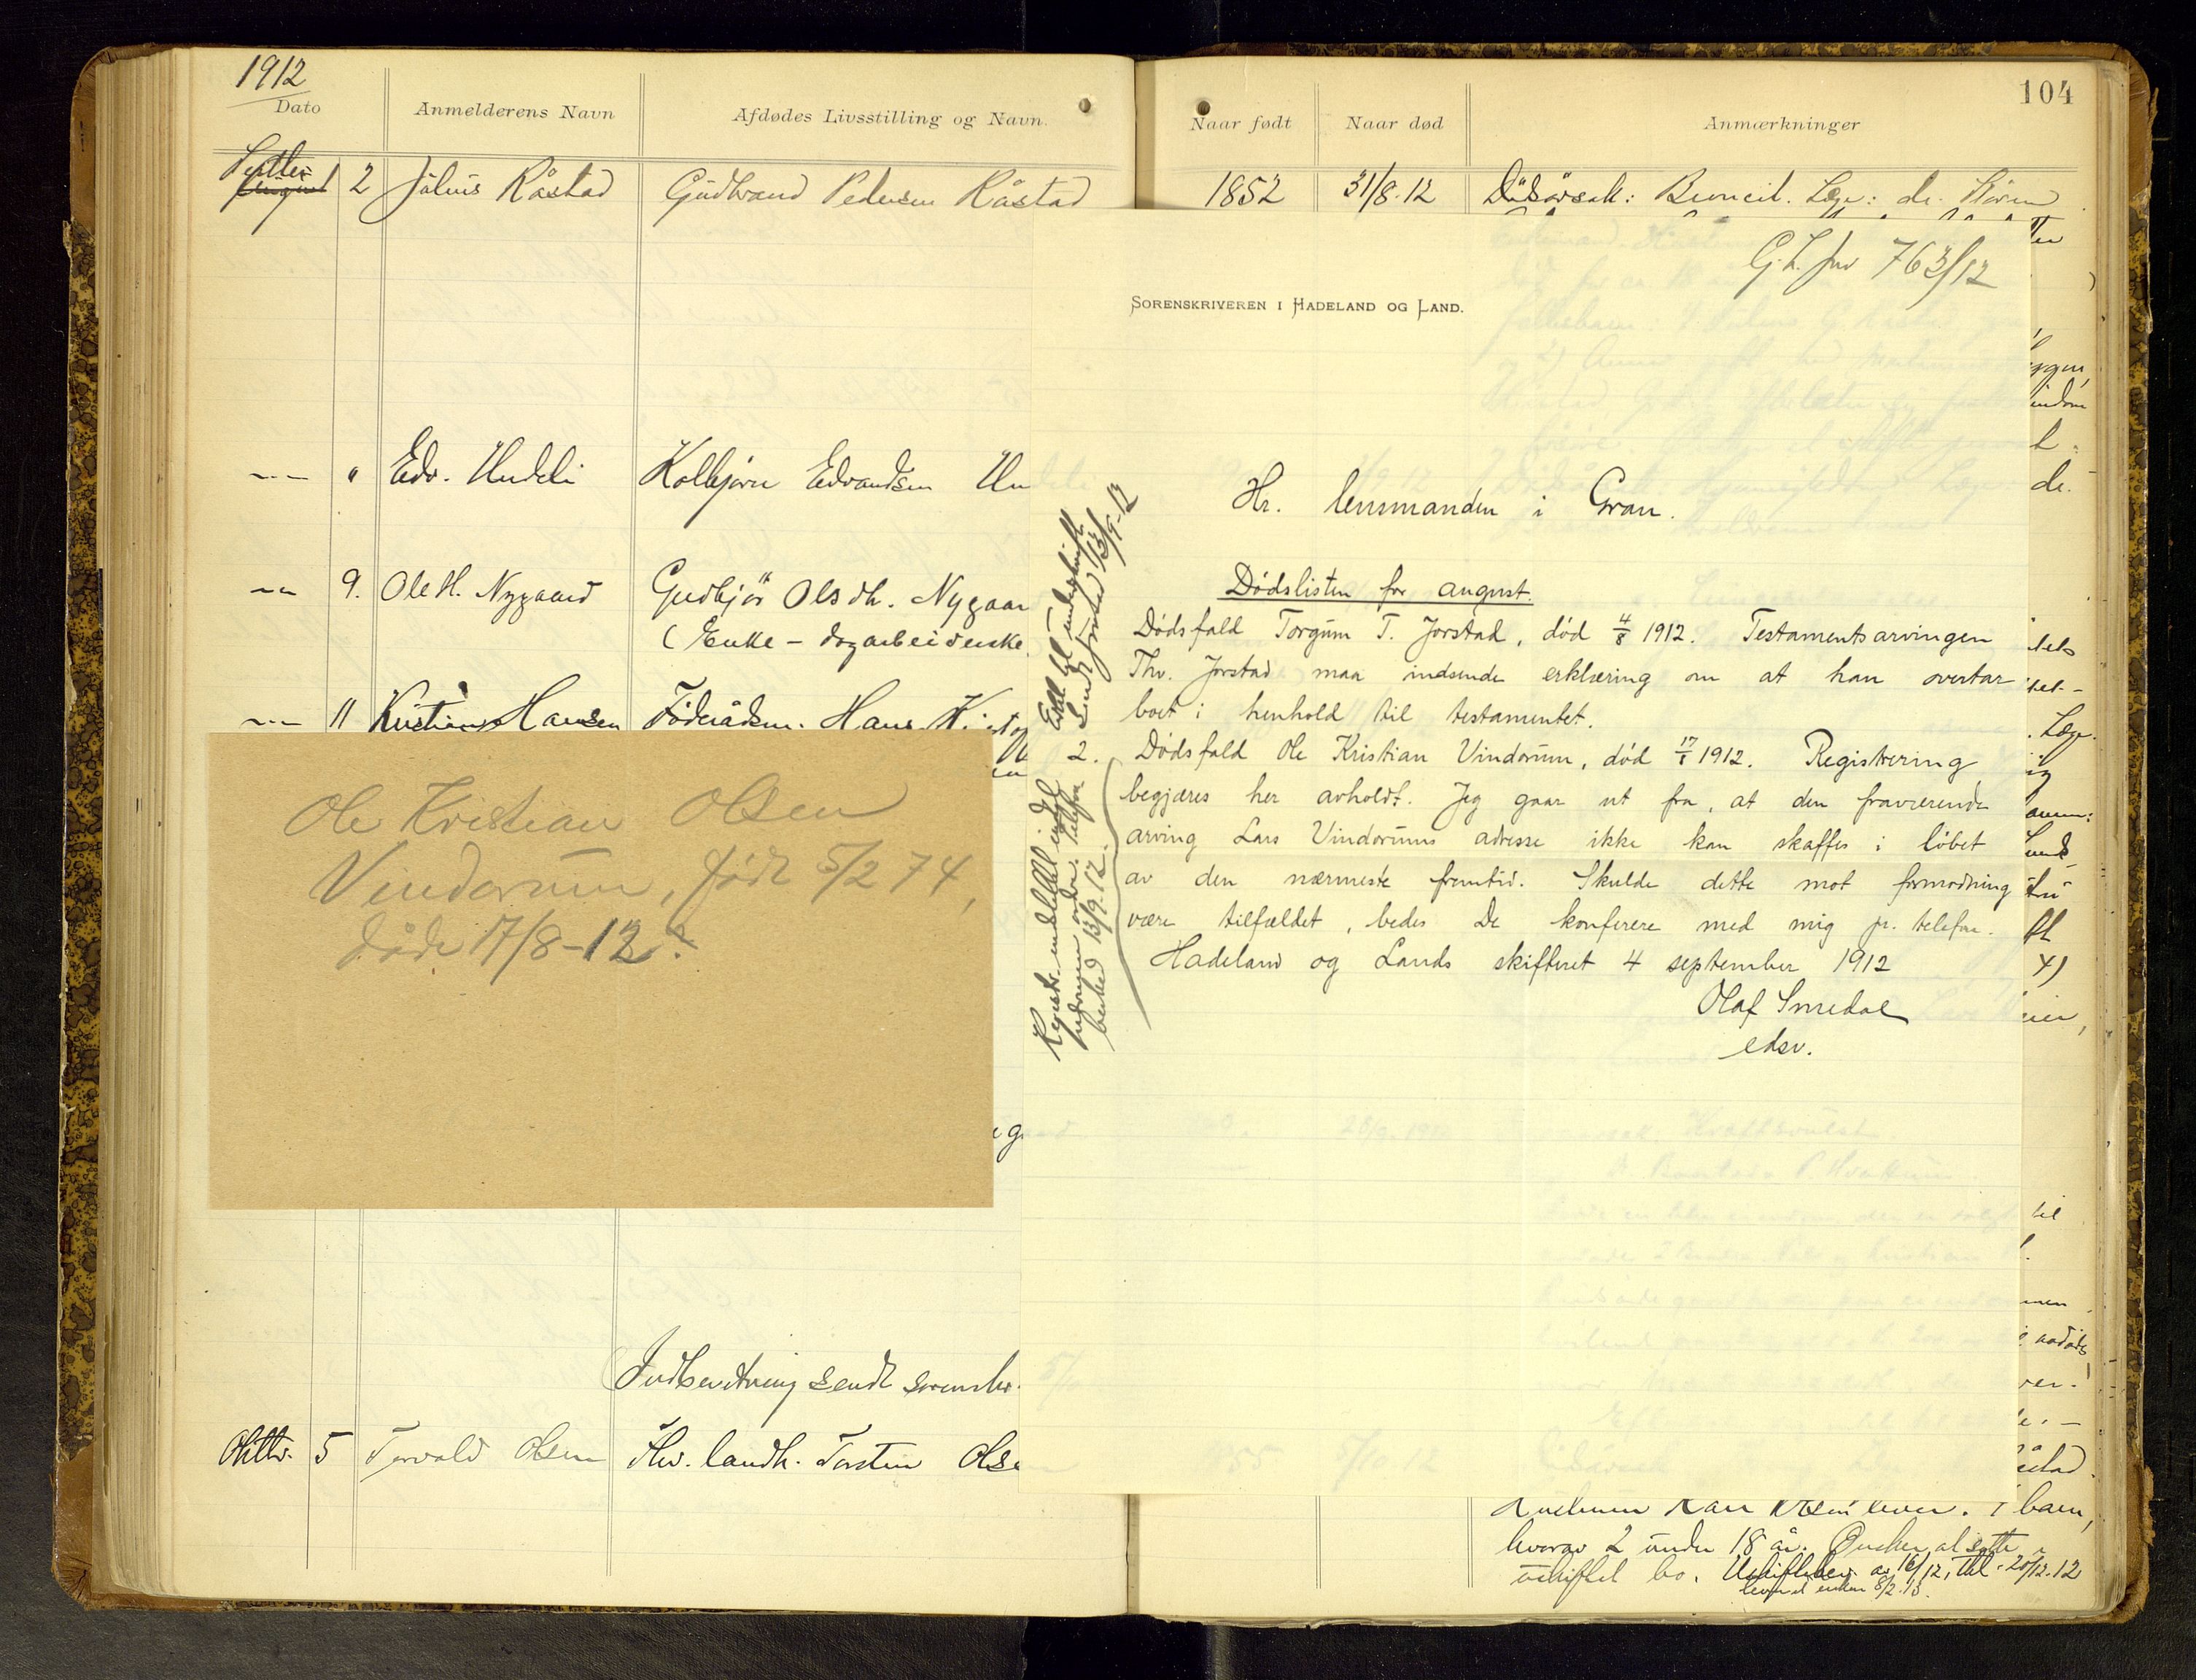 1912
Dato
Anmelderens Navn
Afdødes Livsstilling og Navn.
Naar født
Naar død
Anmærkninger
104
Septbr
August 2 Julius Råstad Gudbrand Pedersen Råstad 1852 31/8.12 Dødsårsak: Læge: dr.
" Edv. Hudeli Kolbjørn Edvardsen Hu
9. Ole H. Nygaard Gudbjør Olsdh. Nygaar
(Enke - dagarbeiderske
11 Kristian Hansen Føderådsm. Hans
Ole Kristian Olsen
Vindorum, født 5/2 74,
døde 17/8-12.
Indberetning sendt sorenskr.
Oktbr. 5 Torvald Olsen Torstein Olse
G. L. jnr 763/12
SORENSKRIVEREN I HADELAND OG LAND.
Hr. lensmanden i Gran.
Dødslisten for august.
Dødsfald Torgum T. Jorstad, død 4/8 1912. Testamentsarvingen
Thv. Jorstad maa indsende erklæring om at han overtar
boet i henhold til testamentet.
2. Dødsfald Ole Kristian Vindorum, død 17/8 1912. Registrering
begjæres her avholdt. Jeg gaar ut fra, at den fraværende
arving Lars Vindorums adresse ikke kan skaffes i løbet
av den nærmeste fremtid. Skulde dette mot formodning
være tilfældet, bedes De konferere med mig pr. telefon.
Hadeland og Lands skifteret 4 september 1912
Olaf Smedal
edsv.
Erkl. til underskrift
sendt Jorstad 13/9-12
telefon
besked 13/9-12.
Læge.
de.
til
hvorav 2 under 18 år. Ønsker at sitte
uskiftet bo. Uskiftebev. av 16/12, 20/12.12
levert enken 8/2.13.